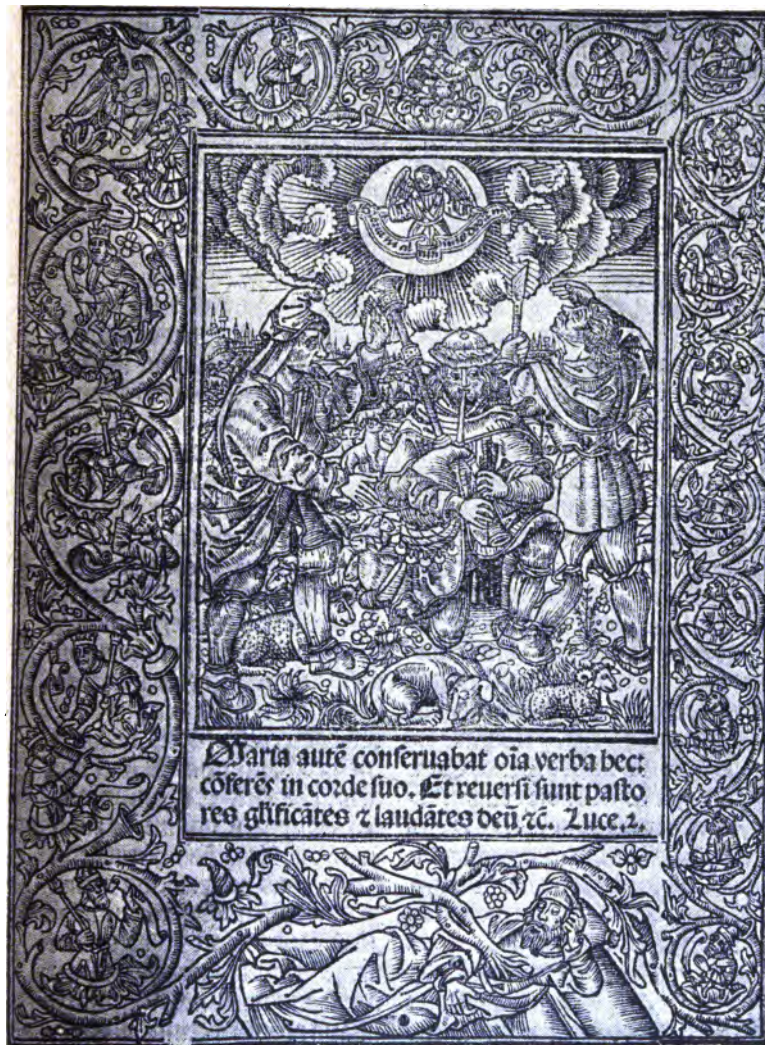 Maria autē conseruabat oīa verba hec:
cōferēs in corde suo. Et reuersi sunt pasto
res gl̄ificātes ⁊ laudātes deū ⁊c̄. Luce.2.